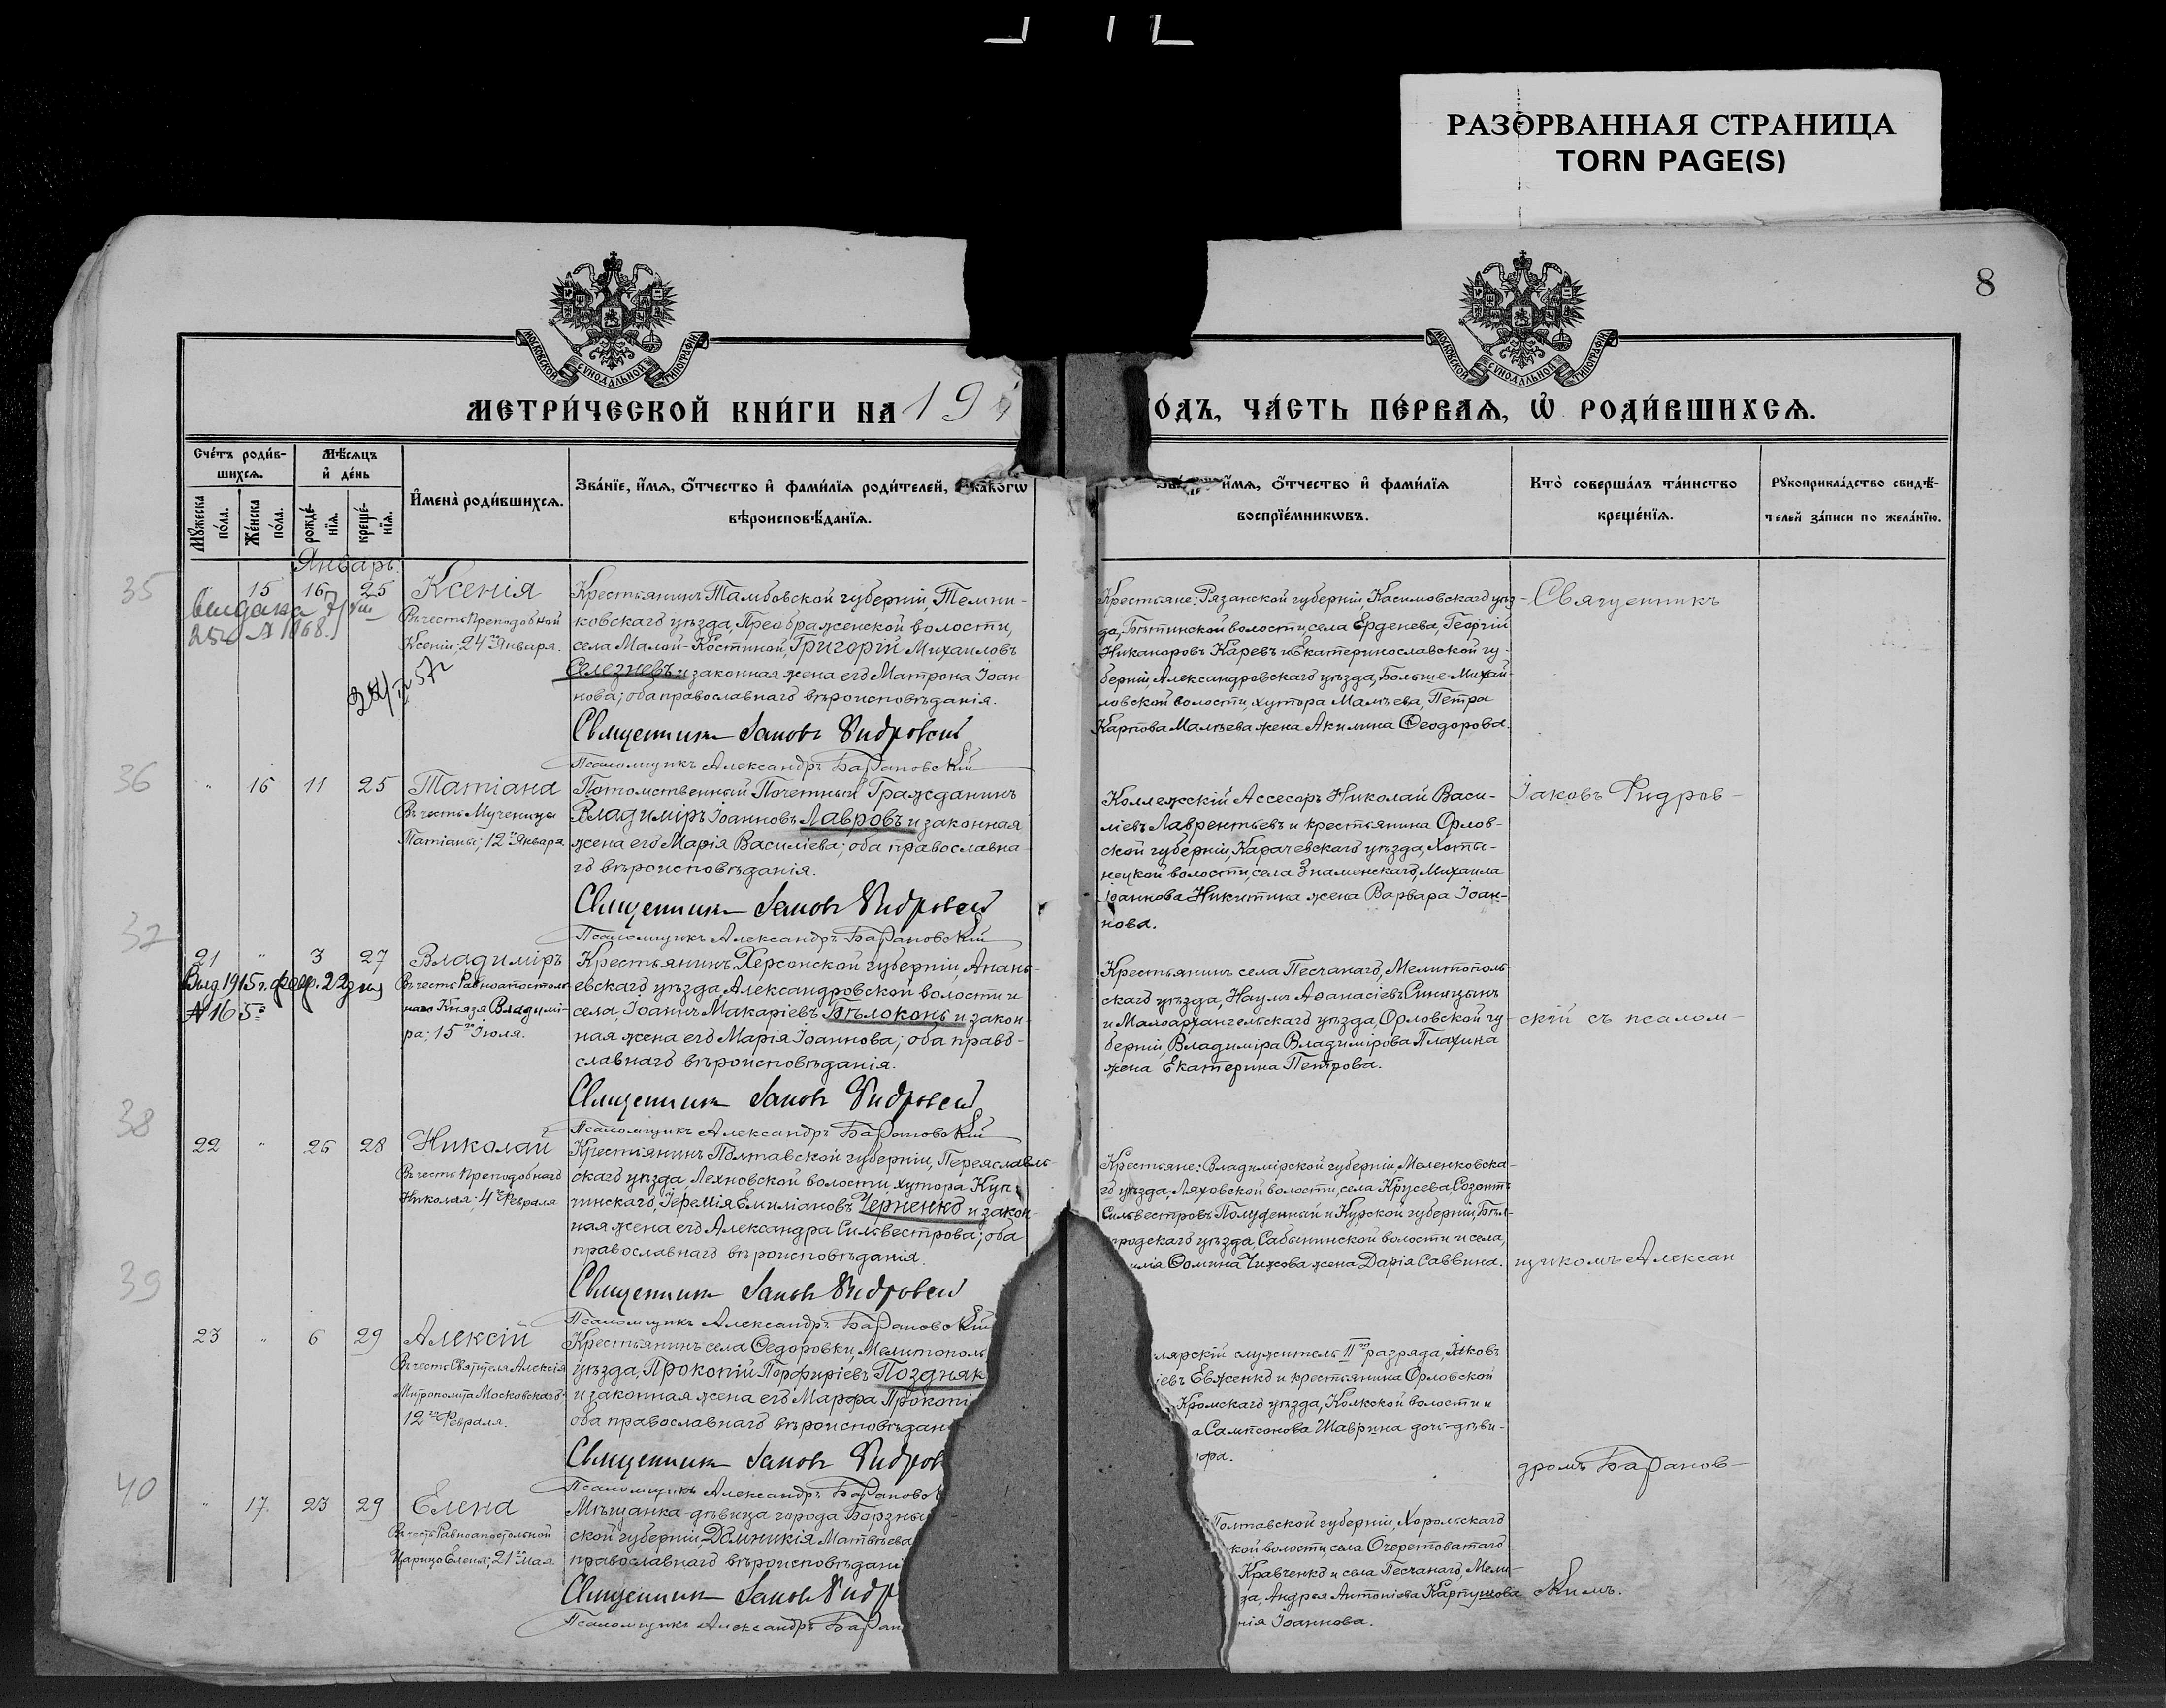 РАЗОРВАННАЯ СТРАНИЦА
TORN PAGE(S)
8
МОСКОВСКОЙ СѴНОДАЛЬНОЙ ТИПОГРАФІИ
МОСКОВСКОЙ СѴНОДАЛЬНОЙ ТИПОГРАФІИ
МЕТРИ́ЧЕСКОЙ КНИ́ГИ НА 191
О́ДЪ, ЧА́СТЬ ПЕ́РВАѦ, Ѡ҆ РОДИ́ВШИХСѦ.
Сче́тъ роди́в-
шихсѧ.
Мѣ́сѧцъ
и҆ де́нь
Мꙋ́жеска
по́ла.
Же́нска
по́ла.
рожде́-
нїѧ.
креще́-
нїѧ.
И҆мена̀ роди́вшихсѧ.
Зва́нїе, и҆́мѧ, ѻ҆́тчество и҆ фами́лїѧ роди́телей, и҆ како́гѡ
вѣроисповѣ́данїѧ.
и҆́мѧ, ѻ҆́тчество и҆ фами́лїѧ
воспрїе́мникѡвъ.
Кто̀ соверша́лъ та́инство
креще́нїѧ.
Рꙋкоприкла́дство свидѣ́-
телей за́писи по жела́нїю.
Январь.
35
15 16 25 Ксенія
Въ честь Преподобной
Ксеніи; 24го Января.
выдана
№ 1868.
Крестьянинъ Тамбовской губерніи, Темни-
ковскаго уѣзда, Преображенской волости,
села Малой-Костиной, Григорій Михаиловъ
Селезневъ и законная жена его Матрона Іоан-
нова; оба православнаго вѣроисповѣданія.
Священникъ Іаковъ Фидровскій
Псаломщикъ Александръ Барановскій
Крестьяне: Рязанской губерніи, Касимовскаго уѣз-
да, Бѣтинской волости, села Ерденева, Георгій
Никаноровъ Каревъ и Екатеринославской гу-
берніи, Александровскаго уѣзда, Больше-Михай-
ловской волости, хутора Малѣева, Петра
Карпова Малѣева жена Акилина Ѳеодорова.
Священникъ
36
" 16 11 25 Татіана
Въ честь Мученицы
Татіаны; 12го Января
Потомственный Почетный Гражданинъ
Владиміръ Іоанновъ Лавровъ и законная
жена его Марія Василіева; оба православна-
го вѣроисповѣданія.
Священникъ Іаковъ Фидровскій
Псаломщикъ Александръ Барановскій
Коллежскій Ассесоръ Николай Васи-
ліевъ Лаврентьевъ и крестьянина Орлов-
ской губерніи, Карачевскаго уѣзда, Хоты-
нецкой волости, села Знаменскаго, Михаила
Іоаннова Никитина жена Варвара Іоан-
нова.
Іаковъ Фидров-
37
21 " 3 27 Владиміръ
Выд 1915 г. февр. 22 дня
№ 165
Въ честь Равноапостоль-
наго Князя Владимі-
ра; 15го Іюля.
Крестьянинъ Херсонской губерніи, Анань-
евскаго уѣзда, Александровской волости и
села, Іоаннъ Макаріевъ Бѣлоконь и закон-
ная жена его Марія Іоаннова; оба право-
славнаго вѣроисповѣданія.
Священникъ Іаковъ Фидровскій
Псаломщикъ Александръ Барановскій
Крестьянинъ села Песчанаго, Мелитополь-
скаго уѣзда, Наумъ Аѳанасіевъ Синицынъ
и Малоархангельскаго уѣзда, Орловской гу-
берніи, Владиміра Владимірова Плахина
жена Екатерина Петрова.
скій съ псалом-
38
22 " 26 28 Николай
Въ честь Преподобнаго
Николая; 4го Февраля
Крестьянинъ Полтавской губерніи, Переяславль-
скаго уѣзда, Лехновской волости, хутора Куп-
чинскаго, Іеремія Емиліановъ Черненко и закон-
ная жена его Александра Сильвестрова; оба
православнаго вѣроисповѣданія.
Священникъ Іаковъ Фидровскій
Псаломщикъ Александръ Барановскій
Крестьяне: Владимірской губерніи, Меленковска-
го уѣзда, Ляховской волости, села Крусева, Созонтъ
Сильвестровъ Полуденный и Курской губерніи, Бѣл-
городскаго уѣзда, Сабынинской волости и села,
илія Ѳомина Чижова жена Дарія Саввина.
щикомъ Алексан-
39
23 " 6 29 Алексій
Въ честь Святителя Алексія
Митрополита Московскаго;
12го Февраля.
Крестьянинъ села Ѳедоровки, Мелитополь
уѣзда, Прокопій Порфиріевъ Поздняк
и законная жена его Марѳа Прокопі
оба православнаго вѣроисповѣдан
Священникъ Іаковъ Фидров
Псаломщикъ Александръ Барановск
лярскій служитель II го разряда, Яковъ
іевъ Евженко и крестьянина Орловской
Кромскаго уѣзда, Колкской волости и
а Сампсонова Шаврина дочь-дѣви-
ора.
дромъ Баранов-
40
" 17. 23 29 Елена
Въ честь Равноапостольной
Царицы Елены; 21го Мая
Мѣщанка-дѣвица города Борзны
ской губерніи, Домникія Матѳѣева
православнаго вѣроисповѣдані
Священникъ Іаковъ Фидр
Псаломщикъ Александръ Баран
Полтавской губерніи, Хорольскаго
кой волости, села Очеретоватаго
Кравченко и села Песчанаго, Мели-
да, Андрея Антоніева Картушова
нія Іоаннова.
скимъ.